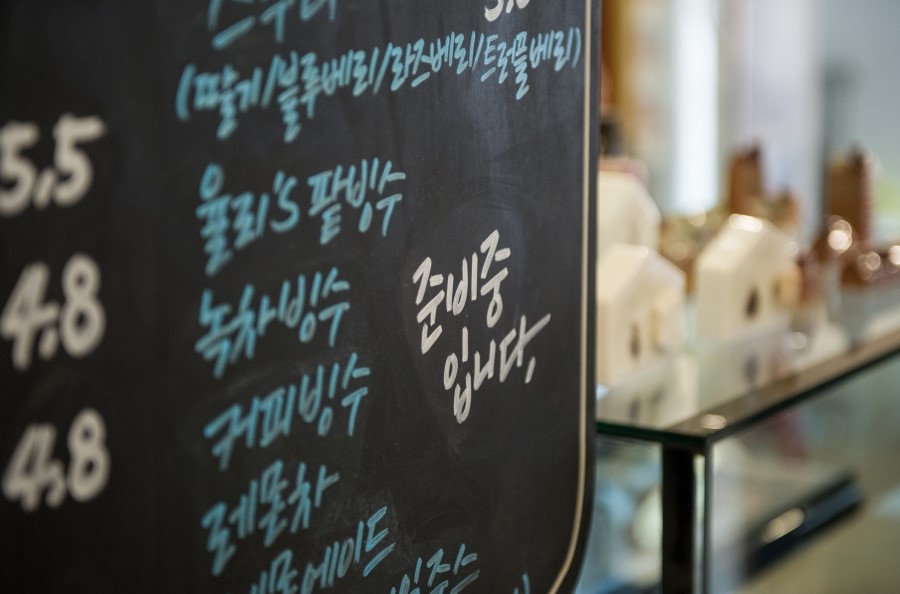 스무디
(딸기/블루베리/라즈베리/트러플베리)
5.5
율리's 팥빙수
4.8
녹차빙수
준비중
입니다.
커피빙수
4.8
레몬차
레몬에이드